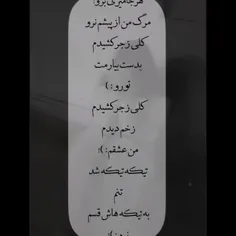 هرجا میری برو!
مرگ من از پیشم نرو
کلی زجر کشیدم
بدست بیارمت
تو رو : )
کلی زجر کشیدم
زخم دیدم
من عشقم : )!
تیکه تیکه شد
تنم
به تیکه هاش قسم